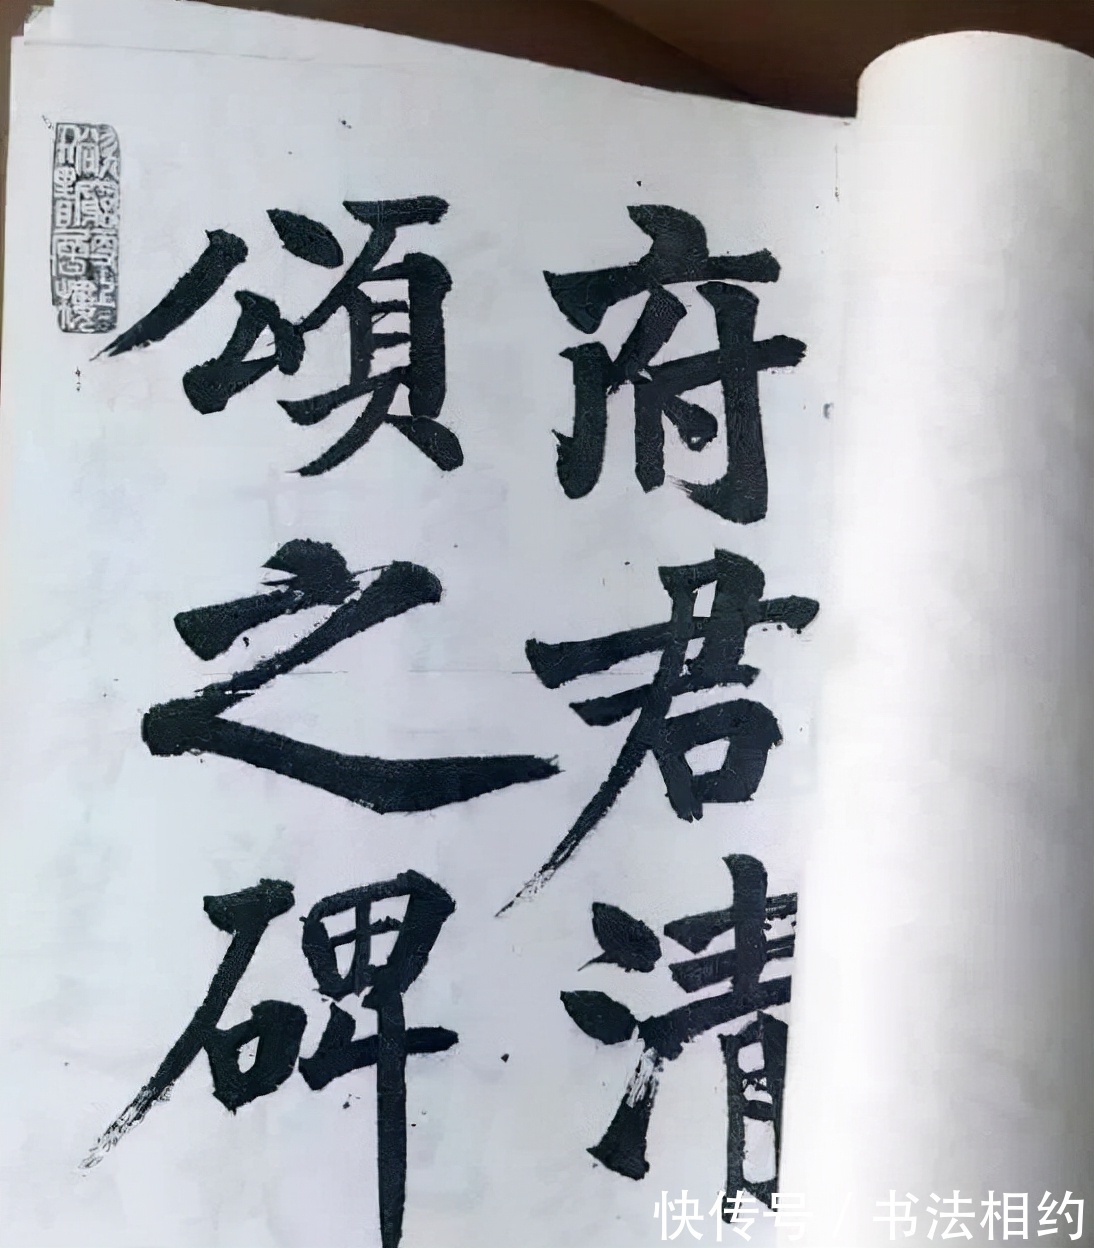 府君清
頌之碑
快传号 / 书法相约